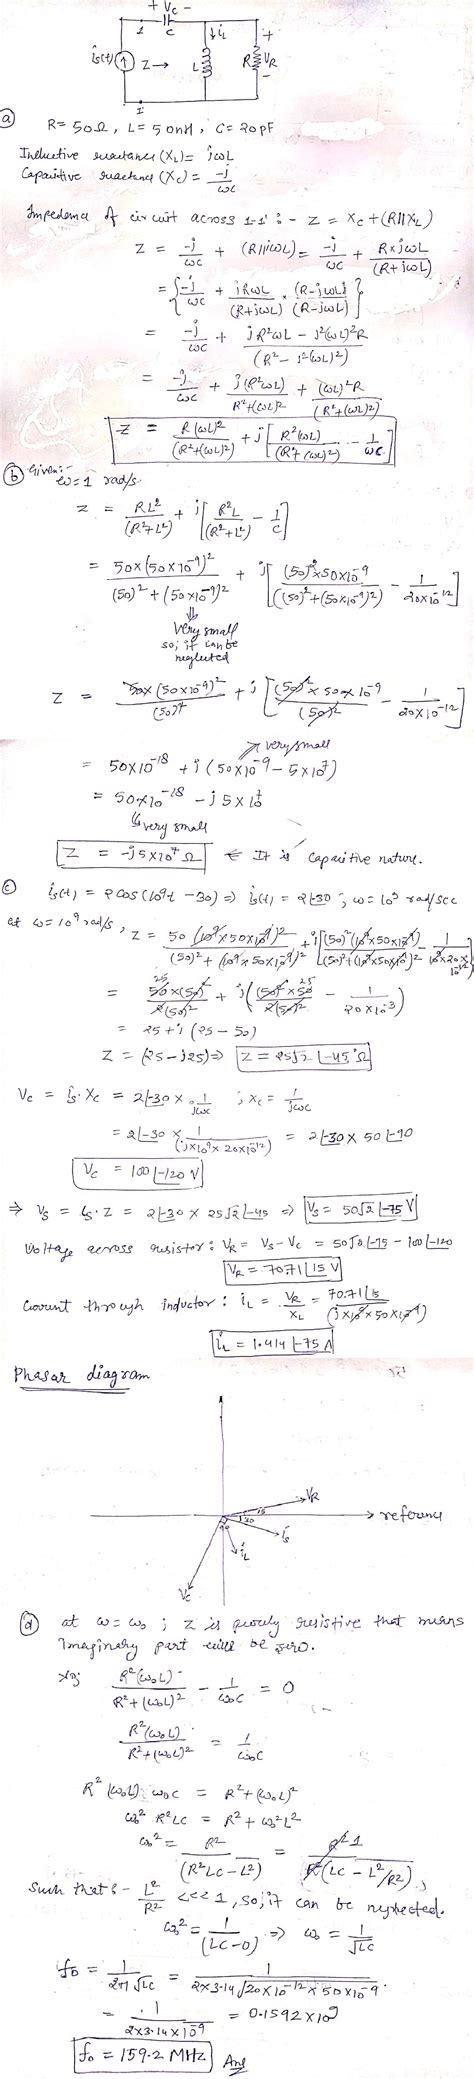 + Vc -
1 C ↓iL +
is(t) Z→ L R VR
-
1'
(a)
R= 50Ω, L= 50nH, C= 20pF
Inductive reactance (XL)= jωL
Capacitive reactance (Xc)= -j/ωC
Impedence of circuit across 1-1' :- Z = Xc+(R||XL)
Z = -j/ωC + (R||jωL)= -j/ωC + R×jωL/(R+jωL)
= {-j/ωC + jRωL/(R+jωL) × (R-jωL)/(R-jωL)}
= -j/ωC + jR²ωL - j²(ωL)²R/(R²- j²(ωL)²)
= -j/ωC + j(R²ωL)/R²+(ωL)² + (ωL)²R/(R²+(ωL)²)
Z = R(ωL)²/(R²+(ωL)²) + j[R²(ωL)/(R²+(ωL)²) - 1/ωC]
(b) Given:- ω=1 rad/s
Z = RL²/(R²+L²) + j[R²L/(R²+L²) - 1/C]
= 50×(50×10⁻⁹)²/(50)²+(50×10⁻⁹)² + j[(50)²×50×10⁻⁹/((50)²+(50×10⁻⁹)²) - 1/20×10⁻¹²]
very small
so; it can be
neglected
Z = 50×(50×10⁻⁹)²/(50)² + j[(50)²×50×10⁻⁹/(50)² - 1/20×10⁻¹²]
very small
= 50×10⁻¹⁸ + j(50×10⁻⁹ - 5×10⁷)
= 50×10⁻¹⁸ - j5×10⁷
very small
Z = -j5×10⁷ Ω ← It is capacitive nature.
(c) is(t) = 2cos(10⁹t -30) ⇒ is(t) = 2∠-30 ; ω=10⁹ rad/sec
at ω=10⁹rad/s, Z = 50(10⁹×50×10⁻⁹)²/(50)²+(10⁹×50×10⁻⁹)² + j[(50)²(10⁹×50×10⁻⁹)/(50)²+(10⁹×50×10⁻⁹)² - 1/10⁹×20×10⁻¹²]
= 50×(50)²/2(50)² + j((50)²×50/2(50)² - 1/20×10⁻³)
= 25+j(25-50)
Z = (25-j25)⇒ Z = 25√2∠-45°Ω
Vc = is·Xc = 2∠-30 × 1/jωC ; Xc = 1/jωC
= 2∠-30 × 1/(j×10⁹×20×10⁻¹²) = 2∠-30×50∠-90
Vc = 100∠-120 V
⇒ Vs = is·Z = 2∠-30 × 25√2∠-45 ⇒ Vs = 50√2∠-75 V
Voltage across resistor: VR = Vs-Vc = 50√2∠-75 - 100∠-120
VR = 70.71∠15 V
Current through inductor: iL = VR/XL = 70.71∠15/(j×10⁹×50×10⁻⁹)
iL = 1.414∠-75 A
Phasar diagram
VR
15
30
→ reference
is
90
iL
Vc
(d) at ω=ω₀ ; Z is purely resistive that means
Imaginary part will be zero.
R²(ω₀L)/R²+(ω₀L)² - 1/ω₀C = 0
R²(ω₀L)/R²+(ω₀L)² = 1/ω₀C
R²(ω₀L)·ω₀C = R²+(ω₀L)²
ω₀² R²LC = R²+ω₀²L²
ω₀² = R²/(R²LC-L²) = R²1/R²(LC-L²/R²),
Such that:- L²/R² <<<1, so; it can be neglected.
ω₀² = 1/(LC-0) ⇒ ω₀ = 1/√LC
f₀ = 1/2π√LC = 1/2×3.14√20×10⁻¹²×50×10⁻⁹
= 1/2×3.14×10⁻⁹ = 0.1592×10⁹
f₀ = 159.2 MHz Ans